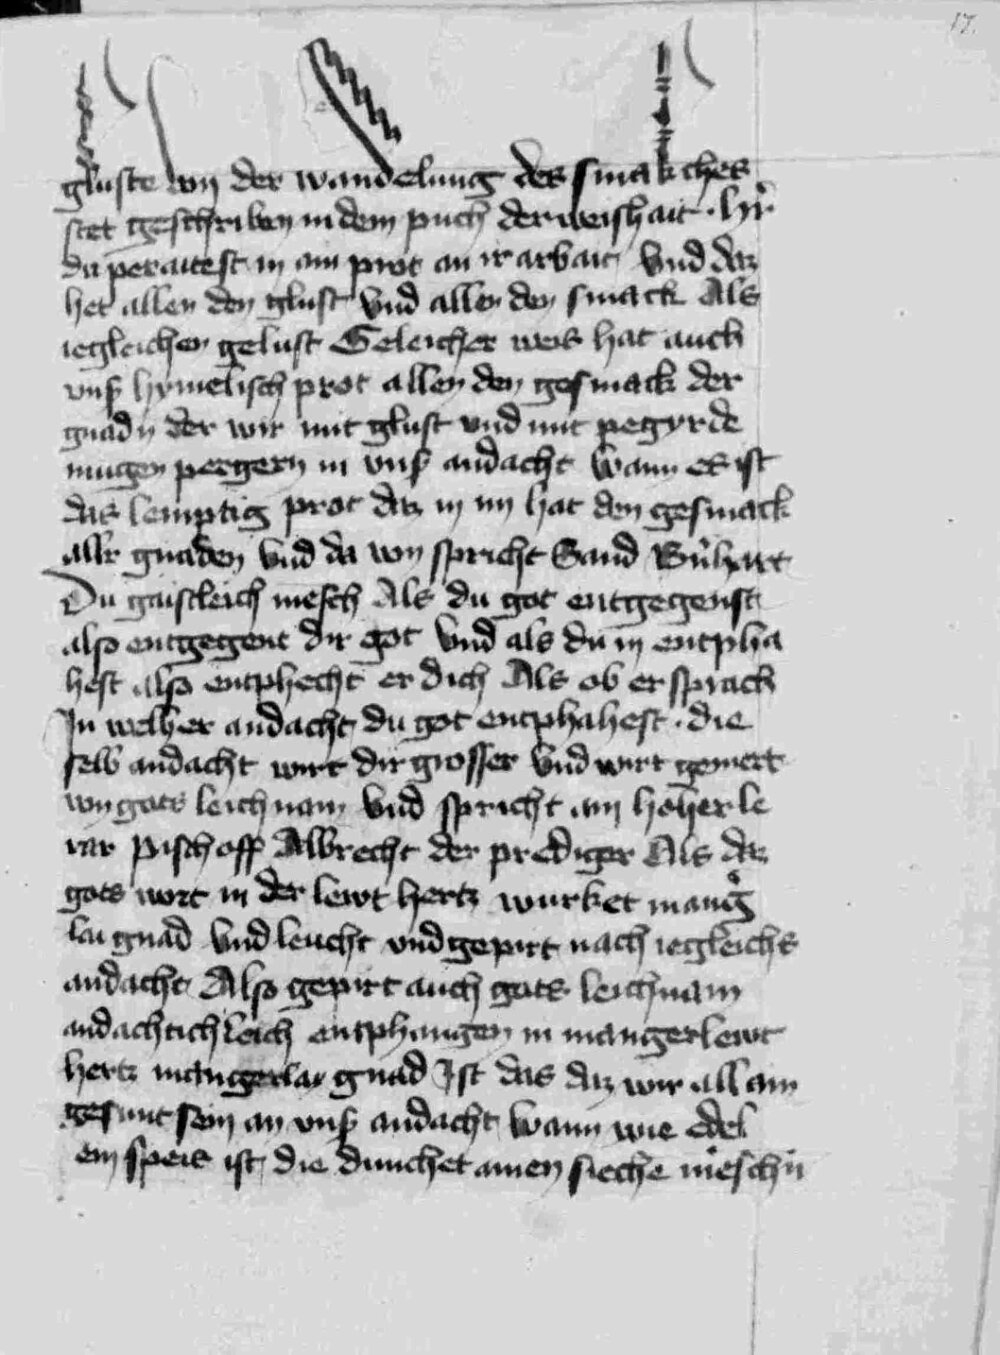 17.
gluste von der wandelung des smakches
stet geschriben in dem puch der weishait · hr̃
du peraitest in ain prot an ir arbait vnd daz
het allen den glust vnd allen den smack Als
iegleichen gelust Geleicher weis hat auch
vnß hymelisch prot allen den gesmack der
gnadn̄ der wir mit glust vnd mit pegyrde
mugen pegern in vnß andacht wann es ist
das lemptig prot daz in im hat den gesmack
all'r gnaden vnd da von spricht Sand
Du gaistleich mesch Als du got entgegenst
also entgegent dir got vnd als du in entpha
hest also entphecht er dich Als ob er sprach
In welher andacht du got entphahest · die
selb andacht wirt dir grosser vnd wirt gemert
von gots leichnam vnd spricht ain hoher le
rar pischoff Albrecht der prediger Als daz
gots wort in der lewt hertz wurket mang̃
lai gnad vnd leucht vnd gepirt nach iegleichs
andacht Also gepirt auch gots leichnam
andachtichleich entphangen in manger lewt
hertz mangerlay gnad Ist das daz wir all ain
gesunt sein an vnß andacht wann wie edel
ein speis ist die dunchet ainen sieche mēschn̄